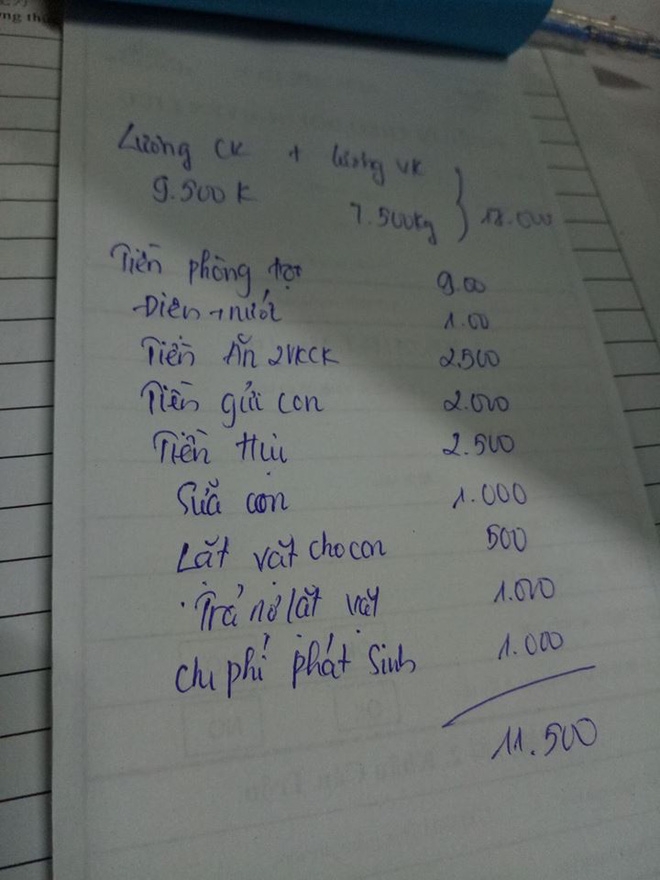 Lương CK + lương VK
9.500K 7.500Kg } 18.000
Tiền phòng trọ 9.00
Điên + nước 1.00
Tiền Ăn 2VKCK 2.500
Tiền gửi con 2.000
Tiền Hụi 2.500
Sữa con 1.000
Lặt vặt cho con 500
Trả nợ lặt vặt 1.000
Chi phí phát sinh 1.000
11.500